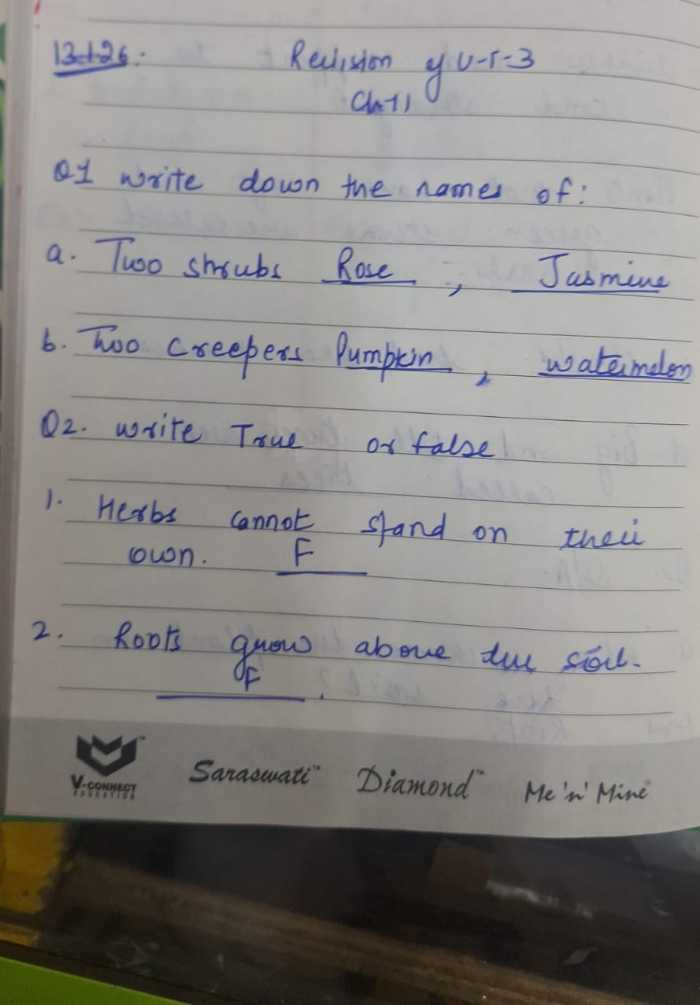 13-1-26.
Revision of U-T-3
Ch-11
Q1 write down the names of:
a. Two shrubs Rose, Jasmine
b. Two creepers Pumpkin, watermelon
Q2. write True or false
1. Herbs cannot stand on their
own. F
2. Roots grow above the soil.
F.
V-CONNECT
EDUCATION
Saraswati™ Diamond™ Me 'n' Mine